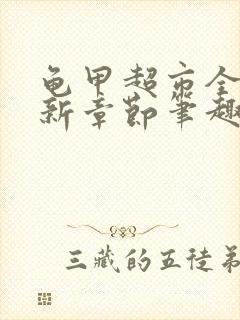 龟甲超市全
新章节笔趣
三藏的五徒弟